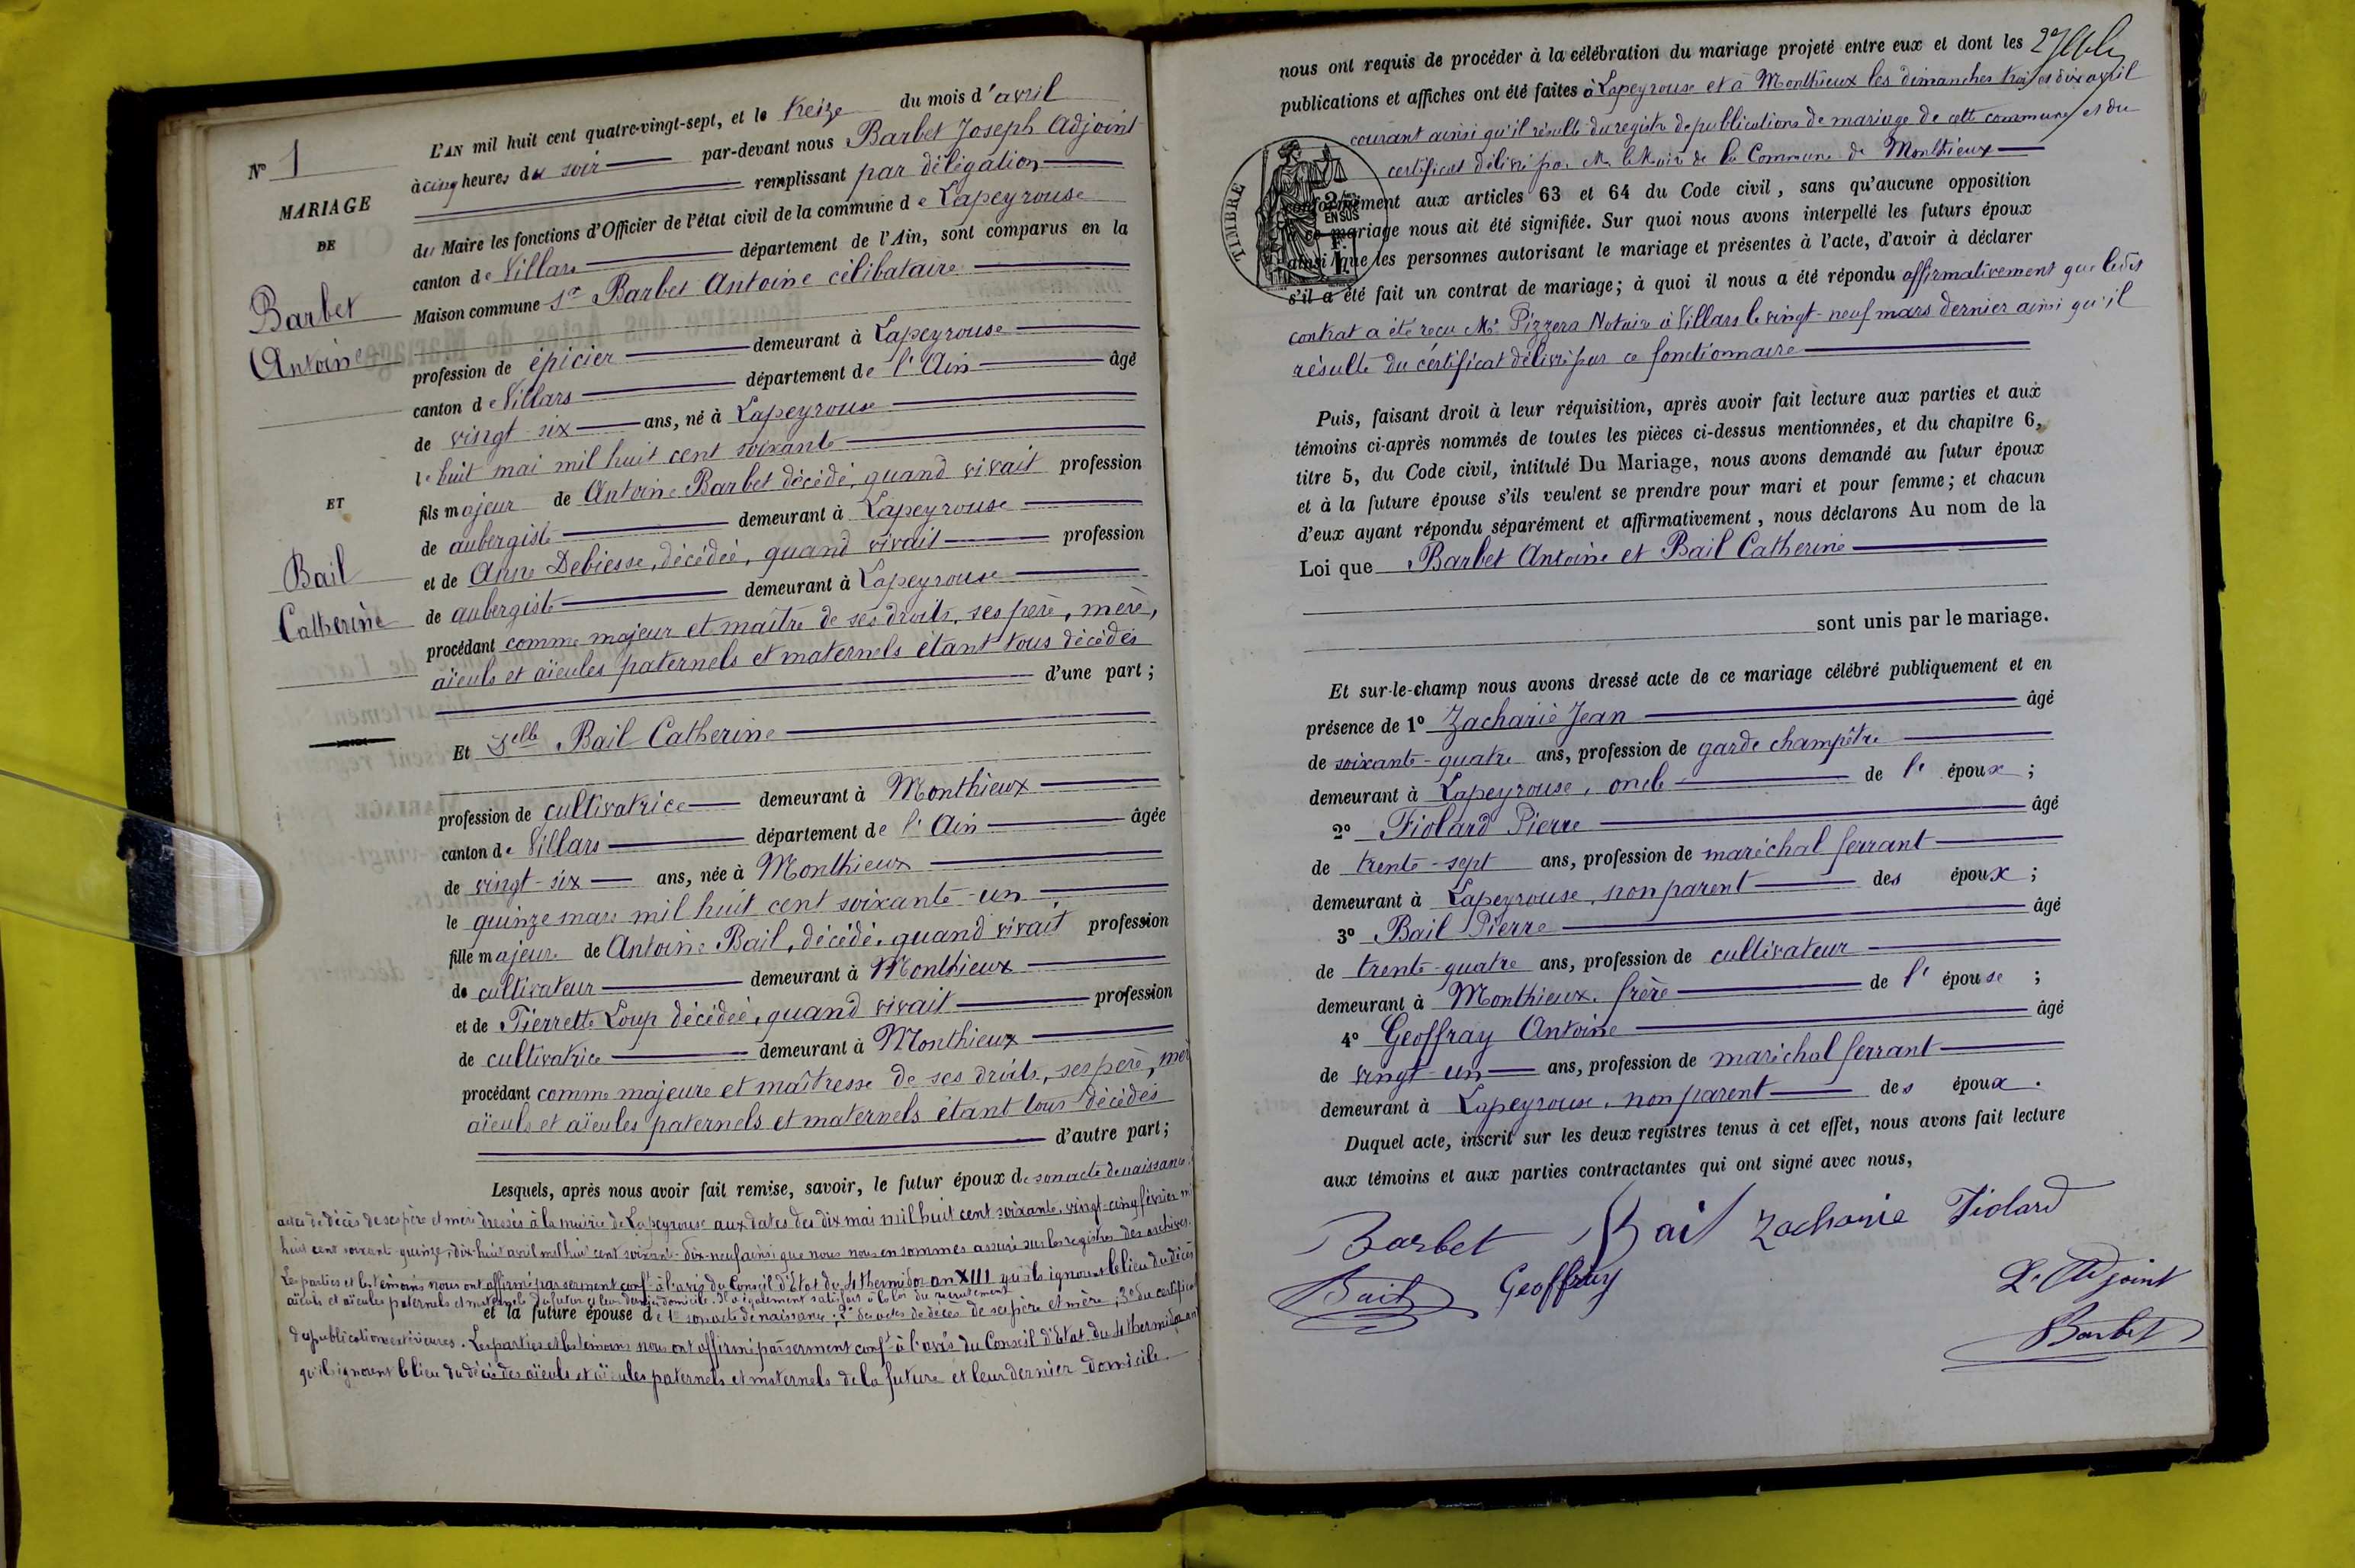 N° 1
MARIAGE
DE
Barbet
Antoine
ET
Bail
Catherine
L'AN mil huit cent quatre-vingt-sept, et le treize du mois d'avril
à cinq heures du soir par-devant nous Barbet Joseph Adjoint
remplissant par délégation
du Maire les fonctions d'Officier de l'état civil de la commune de Lapeyrouse
canton de Villars département de l'Ain, sont comparus en la
Maison commune Sr Barbet Antoine célibataire
profession de épicier demeurant à Lapeyrouse
canton de Villars département de l'Ain âgé
de vingt-six ans, né à Lapeyrouse
le huit mai mil huit cent soixante
fils majeur de Antoine Barbet décédé, quand vivait profession
de aubergiste demeurant à Lapeyrouse
et de Anne Debiesse, décédée, quand vivait profession
de aubergiste demeurant à Lapeyrouse
procédant comme majeur et maître de ses droits, ses père, mère,
aïeuls et aïeules paternels et maternels étant tous décédés
d'une part;
Et Delle Bail Catherine
profession de cultivatrice demeurant à Monthieux
canton de Villars département de l'Ain âgée
de vingt-six ans, née à Monthieux
le quinze mars mil huit cent soixante-un
fille majeure de Antoine Bail, décédé, quand vivait profession
de cultivateur demeurant à Monthieux
et de Pierrette Loup décédée, quand vivait profession
de cultivatrice demeurant à Monthieux
procédant comme majeure et maîtresse de ses droits, ses père, mère
aïeuls et aïeules paternels et maternels étant tous décédés
d'autre part;
Lesquels, après nous avoir fait remise, savoir, le futur époux de son acte de naissance
actes de décès de ses père et mère dressés à la mairie de Lapeyrouse aux dates des dix mai mil huit cent soixante, vingt-cinq février mil
huit cent soixante-quinze, dix-huit avril mil huit cent soixante-dix-neuf ainsi que nous nous en sommes assuré sur les registres des archives.
Les parties et les témoins nous ont affirmé par serment conft à l'avis du Conseil d'Etat du 4 thermidor an XIII qu'ils ignorent le lieu du décès
aïeuls et aïeules paternels et maternels du futur et leur dernier domicile. Il a également satisfait à la loi du recrutement
et la future épouse de 1° son acte de naissance; 2° des actes de décès de ses père et mère; 3° du certificat
de publications extérieures. Les parties et les témoins nous ont affirmé par serment conft à l'avis du Conseil d'Etat du 4 thermidor an
qu'ils ignorent le lieu du décès des aïeuls et aïeules paternels et maternels de la future et leur dernier domicile.
nous ont requis de procéder à la célébration du mariage projeté entre eux et dont les
publications et affiches ont été faites à Lapeyrouse et à Monthieux les dimanches trois et dix avril
courant ainsi qu'il résulte du registre de publications de mariage de cette commune et du
certificat délivré par Mr le Maire de la Commune de Monthieux
TIMBRE
2/10mes
EN SUS
conformément aux articles 63 et 64 du Code civil, sans qu'aucune opposition
à ce mariage nous ait été signifiée. Sur quoi nous avons interpellé les futurs époux
ainsi que les personnes autorisant le mariage et présentes à l'acte, d'avoir à déclarer
s'il a été fait un contrat de mariage; à quoi il nous a été répondu affirmativement que ledit
contrat a été reçu Me Pizzera Notaire à Villars le vingt-neuf mars dernier ainsi qu'il
résulte du certificat délivré par ce fonctionnaire
Puis, faisant droit à leur réquisition, après avoir fait lecture aux parties et aux
témoins ci-après nommés de toutes les pièces ci-dessus mentionnées, et du chapitre 6,
titre 5, du Code civil, intitulé Du Mariage, nous avons demandé au futur époux
et à la future épouse s'ils veulent se prendre pour mari et pour femme; et chacun
d'eux ayant répondu séparément et affirmativement, nous déclarons Au nom de la
Loi que Barbet Antoine et Bail Catherine
sont unis par le mariage.
Et sur-le-champ nous avons dressé acte de ce mariage célébré publiquement et en
présence de 1° Zacharie Jean âgé
de soixante-quatre ans, profession de garde champêtre
demeurant à Lapeyrouse, oncle de l'époux;
2° Fiolard Pierre âgé
de trente-sept ans, profession de maréchal ferrant
demeurant à Lapeyrouse, non parent des époux;
3° Bail Pierre âgé
de trente-quatre ans, profession de cultivateur
demeurant à Monthieux. frère de l'épouse;
4° Geoffray Antoine âgé
de vingt-un ans, profession de maréchal ferrant
demeurant à Lapeyrouse, non parent des époux.
Duquel acte, inscrit sur les deux registres tenus à cet effet, nous avons fait lecture
aux témoins et aux parties contractantes qui ont signé avec nous,
Barbet Bail Zacharie Fiolard
Bail Geoffray L'Adjoint
Barbet